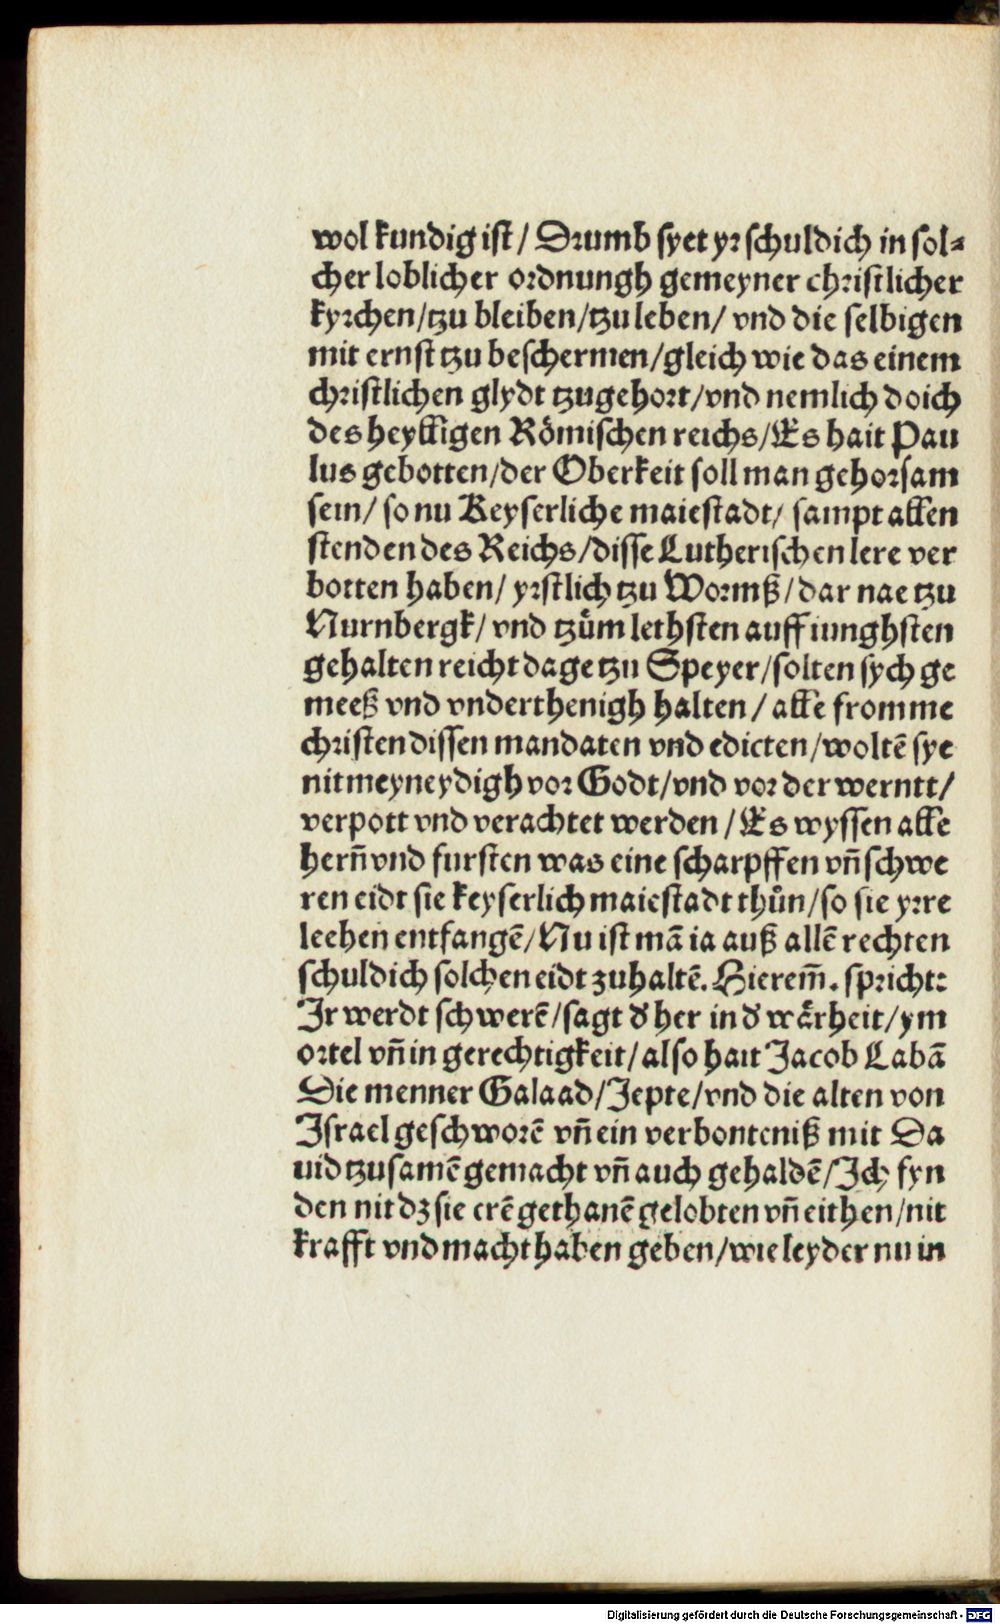 wol kundig ist / Drumb syet yr schuldich in sol⸗
cher loblicher ordnungh gemeyner christlicher
kyrchen/tzu bleiben/tzu leben/ vnd die selbigen
mit ernst tzu beschermen/gleich wie das einem
christlichen glydt tzugehort/vnd nemlich doich
des heylligen Römischen reichs/Es hait Pau
lus gebotten/der Oberkeit soll man gehorsam
sein/ so nu Keyserliche maiestadt/ sampt allen
stenden des Reichs/disse Lutherischen lere ver
botten haben/ yrstlich tzu Wormß/dar nae tzu
Nurnbergk/ vnd tzům lethsten auff iunghsten
gehalten reicht dage tzu Speyer/solten sych ge
meeß vnd vnderthenigh halten/ alle fromme
christen dissen mandaten vnd edicten/woltē sye
nit meyneydigh vor Godt/vnd vor der werntt/
verpott vnd verachtet werden / Es wyssen alle
hern̄ vnd fursten was eine scharpffen vn̄ schwe
ren eidt sie keyserlich maiestadt thůn/so sie yrre
leehen entfangē/Nu ist mā ia auß allē rechten
schuldich solchen eidt zuhaltē. Hierem̄. spricht:
Ir werdt schwerē/sagt d̕ her in d̕ wårheit/ym
ortel vn̄ in gerechtigkeit/also hait Jacob Labā
Die menner Galaad/Jepte/vnd die alten von
Israel geschworē vn̄ ein verbonteniß mit Da
uid tzusamē gemacht vn̄ auch gehaldē/Ich fyn
den nit dz sie erē gethanē gelobten vn̄ eithen/nit
krafft vnd macht haben geben/wie leyder nu in
Digitalisierung gefördert durch die Deutsche Forschungsgemeinschaft - DFG